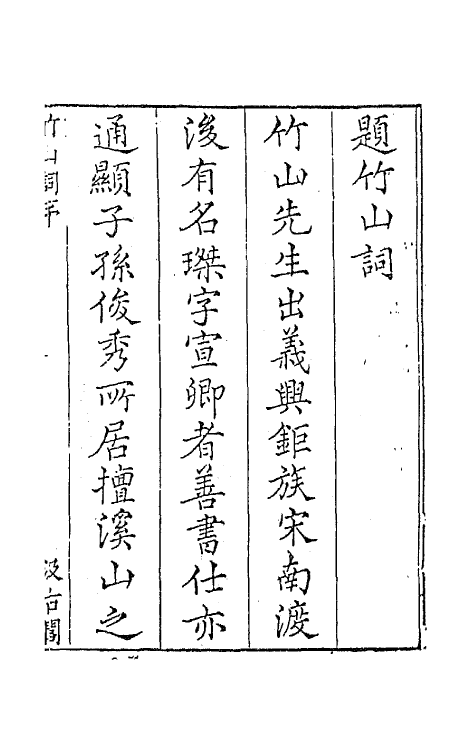 題竹山詞
竹山先生出義興鉅族宋南渡
後有名璨字宣卿者善書仕亦
通顯子孫俊秀所居擅溪山之
竹山詞序
汲古閣